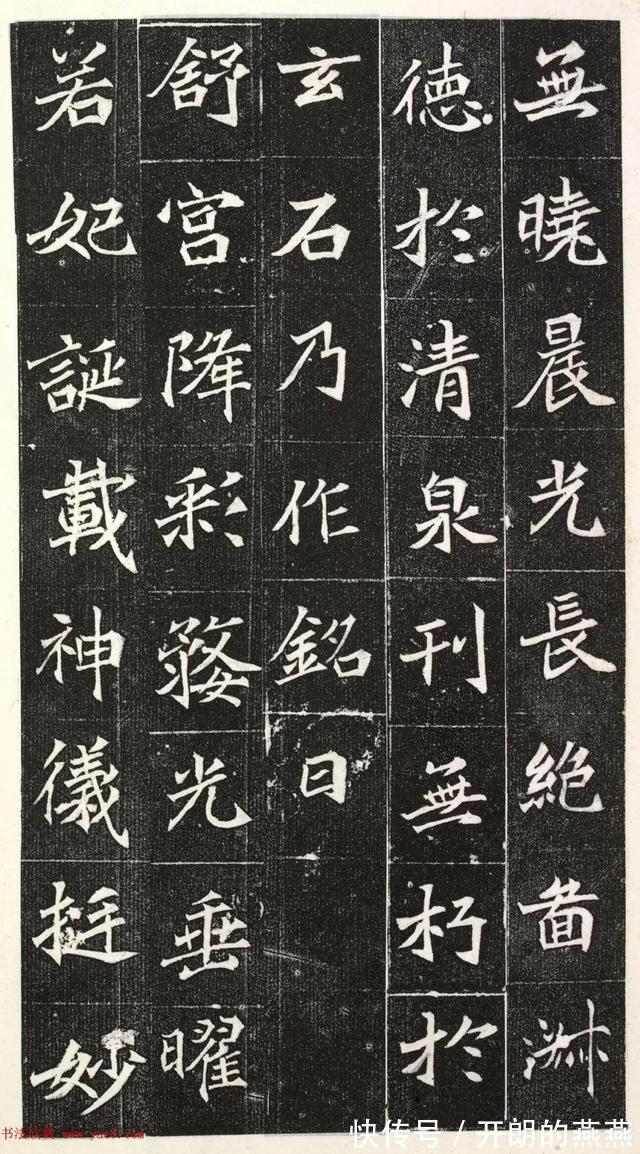 無曉晨光長絶啚淑
徳於清泉刊無朽於
玄石乃作銘曰
舒宮降彩婺光垂曜
若妃誕載神儀挺妙
书法欣赏 www.yac8.com
快传号 / 开朗的燕燕